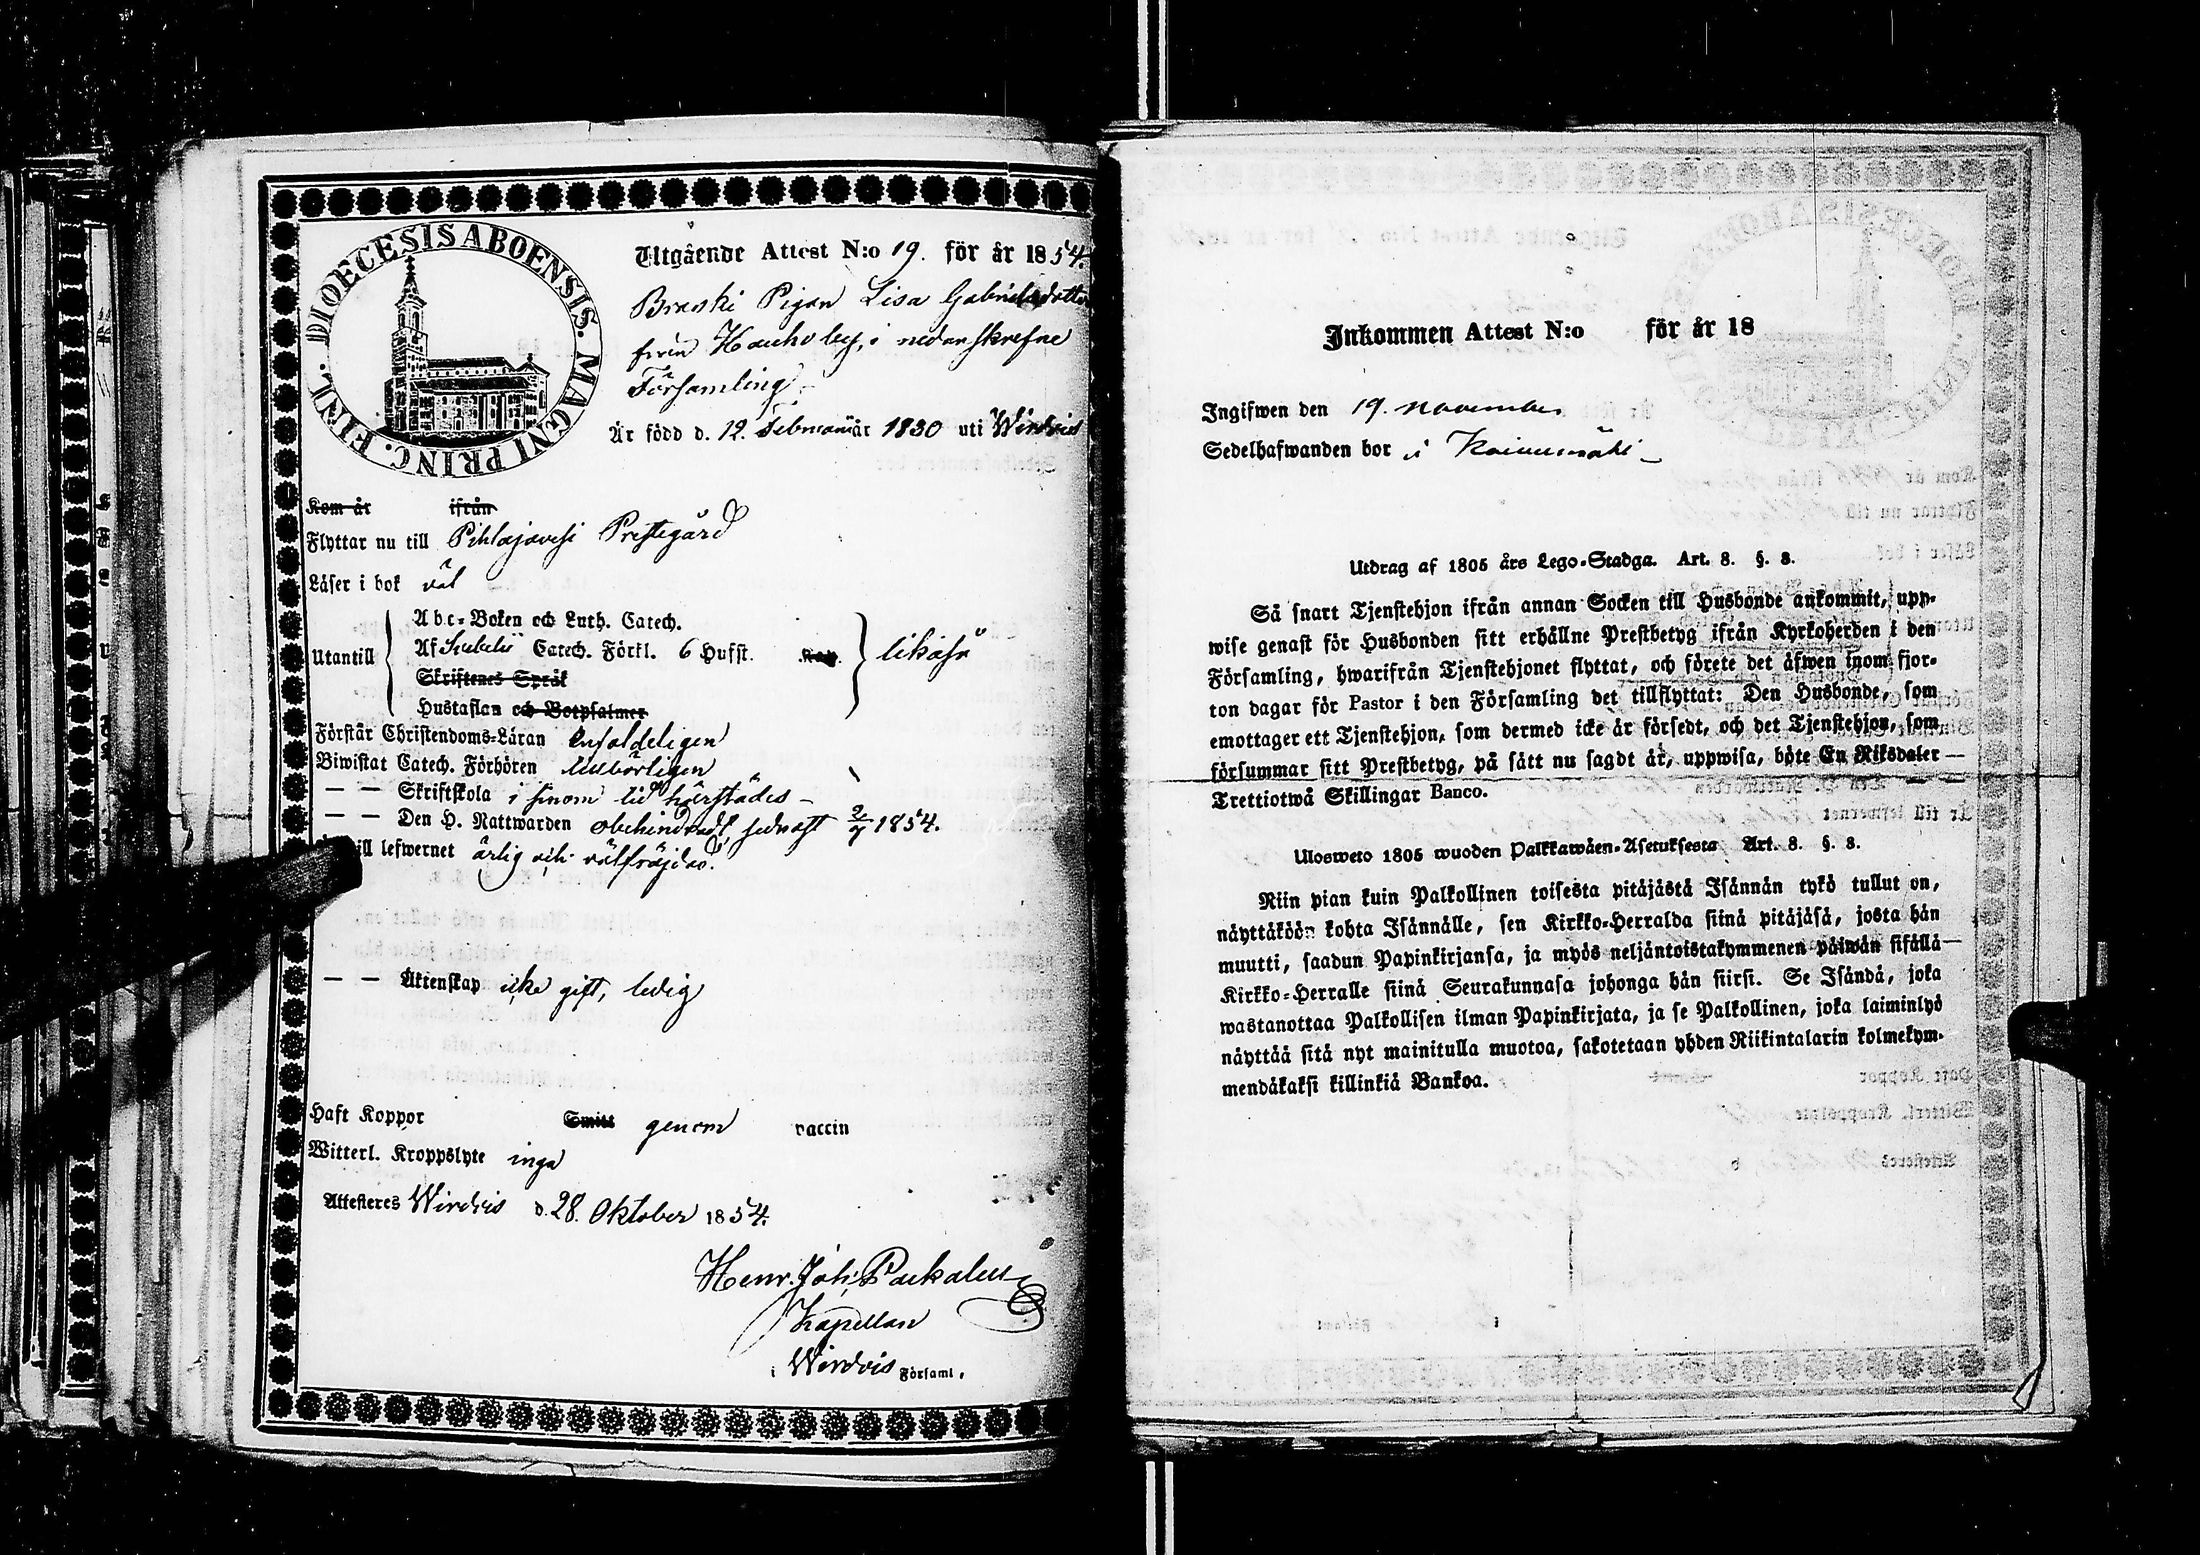 DIOECESIS ABOENSIS. MAGNI PRINC. FINL.
Utgående Attest N:o 19. för år 1854.
Pigan Lisa Gabrielsdotter
från i nedanskrefne
Församling
Är född d. 12. Februarii år 1830 uti Wirdois
Kom år ifrån
Flyttar nu till Pihlajavesi Prestegård
Läser i bok väl
Abc-Boken och Luth. Catech.
Utantill Af Svebelii Catech. Förkl. 6 Hufst. Kap. likaså
Skriftenes Språk
Hustaflan och Botpsalmer
Förstår Christendoms-Läran enfaldeligen
Biwistat Catech. Förhören tillbörligen
— — Skriftskola i sinom tid härstädes —
— — Den H. Nattwarden obehindradt, sednast 2/7 1854.
till lefwernet ärlig och välfräjdad.
— — Äktenskap icke gift, ledig
Haft Koppor Smitt genom vaccin
Witterl. Kroppslyte inga
Attesteres Wirdois d. 28. Oktober 1854.
Henr. Joh.
Kapellan
i Wirdois Församl.
Inkommen Attest N:o för år 18
Ingifwen den 19. november
Sedelhafwanden bor i
Utdrag af 1805 års Lego-Stadga. Art. 8. §. 8.
Så snart Tjenstehjon ifrån annan Socken till Husbonde ankommit, upp-
wise genast för Husbonden sitt erhållne Prestbetyg ifrån Kyrkoherden i den
Församling, hwarifrån Tjenstehjonet flyttat, och förete det äfwen inom fjor-
ton dagar för Pastor i den Församling det tillflyttat: Den Husbonde, som
emottager ett Tjenstehjon, som dermed icke är försedt, och det Tjenstehjon, som
försummar sitt Prestbetyg, på sätt nu sagdt är, uppwisa, böte En Riksdaler
Trettiotwå Skillingar Banco.
Ulosweto 1805 wuoden Palkkawäen-Asetuksesta Art. 8. §. 8.
Niin pian kuin Palkollinen toisesta pitäjästä Isännän tykö tullut on,
näyttäköön kohta Isännälle, sen Kirkko-Herralda siinä pitäjäsä, josta hän
muutti, saadun Papinkirjansa, ja myös neljäntoistakymmenen päiwän sisällä
Kirkko-Herralle siinä Seurakunnasa johonga hän siirsi. Se Isändä, joka
wastanottaa Palkollisen ilman Papinkirjata, ja se Palkollinen, joka laiminlyö
näyttää sitä nyt mainitulla muotoa, sakotetaan yhden Riikintalarin kolmekym-
mendäkaksi killinkiä Bankoa.